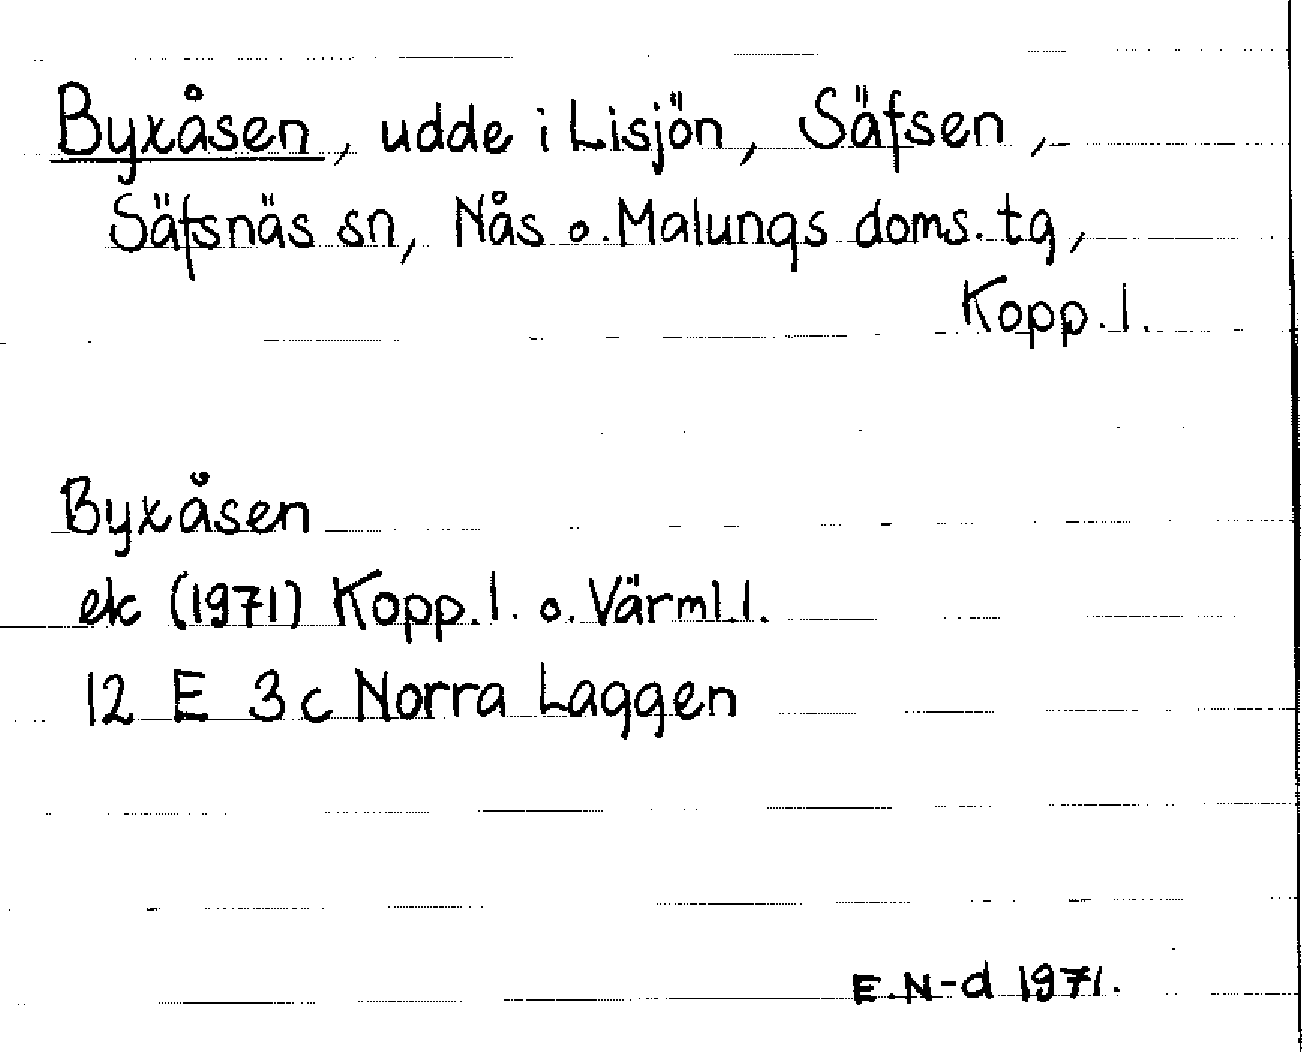 Byxåsen, udde i Lisjön, Säfsen,
Säfsnäs sn, Nås o. Malungs doms. tg,
Kopp. l.
Byxåsen
ek (1971) Kopp. l. o. Värml. l.
12 E 3c Norra Laggen
E.N-d 1971.